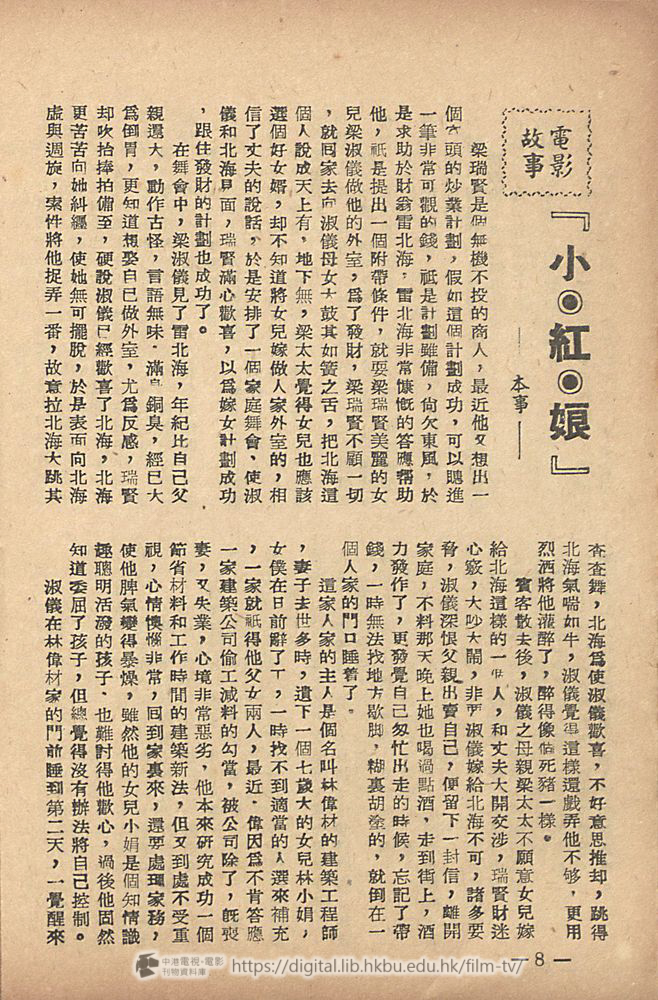 電影
故事
『小◉紅◉娘』
——本事——
梁瑞賢是個無機不投的商人，最近他又想出一
個大頭的炒業計劃，假如這個計劃成功，可以賺進
一筆非常可觀的錢，祗是計劃雖備，尙欠東風，於
是求助於財翁雷北海，雷北海非常慷慨的答應幫助
他，祗是提出一個附帶條件，就要梁瑞賢美麗的女
兒梁淑儀做他的外室，爲了發財，梁瑞賢不顧一切
，就囘家去向淑儀母女大鼓其如簧之舌，把北海這
個人說成天上有，地下無，梁太太覺得女兒也應該
選個好女婿，却不知道將女兒嫁做人家外室的，相
信了丈夫的說話，於是安排了一個家庭舞會，使淑
儀和北海見面，瑞賢滿心歡喜，以爲嫁女計劃成功
，跟住發財的計劃也成功了。
在舞會中，梁淑儀見了雷北海，年紀比自己父
親還大，動作古怪，言語無味，滿身銅臭，經已大
爲倒胃，更知道想娶自己做外室，尤爲反感，瑞賢
却吹拾捧拍備至，硬說淑儀已經歡喜了北海，北海
更苦苦向她糾纒，使她無可擺脫，於是表面向北海
虛與週旋，索性將他捉弄一番，故意拉北海大跳其
查查舞，北海爲使淑儀歡喜，不好意思推却，跳得
北海氣喘如牛，淑儀覺得這樣還戲弄他不够，更用
烈酒將他灌醉了，醉得像個死豬一樣。
賓客散去後，淑儀之母親梁太太不願意女兒嫁
給北海這樣的一個人，和丈夫大開交涉，瑞賢財迷
心竅，大吵大鬧，非要淑儀嫁給北海不可，諸多要
脅，淑儀深恨父親出賣自己，便留下一封信，離開
家庭，不料那天晚上她也喝過點酒，走到街上，酒
力發作了，更發覺自己匆忙出走的時候，忘記了帶
錢，一時無法找地方歇脚，糊裏胡塗的，就倒在一
個人家的門口睡着了。
這家人家的主人是個名叫林偉材的建築工程師
，妻子去世多時，遺下一個七歲大的女兒林小娟，
女僕在日前辭了工，一時找不到適當的人選來補充
，一家就祗得他父女兩人，最近，偉因爲不肯答應
一家建築公司偷工減料的勾當，被公司除了，旣喪
妻，又失業，心境非常惡劣，他本來研究成功一個
節省材料和工作時間的建築新法，但又到處不受重
視，心情懊惱非常，囘到家裏來，還要處理家務，
使他脾氣變得暴燥，雖然他的女兒小娟是個知情識
趣聰明活潑的孩子，也難討得他歡心，過後他固然
知道委屈了孩子，但總覺得沒有辦法將自己控制。
淑儀在林偉材家的門前睡到第二天，一覺醒來
—8—
中港電視·電影
刊物資料庫
https://digital.lib.hkbu.edu.hk/film-tv/